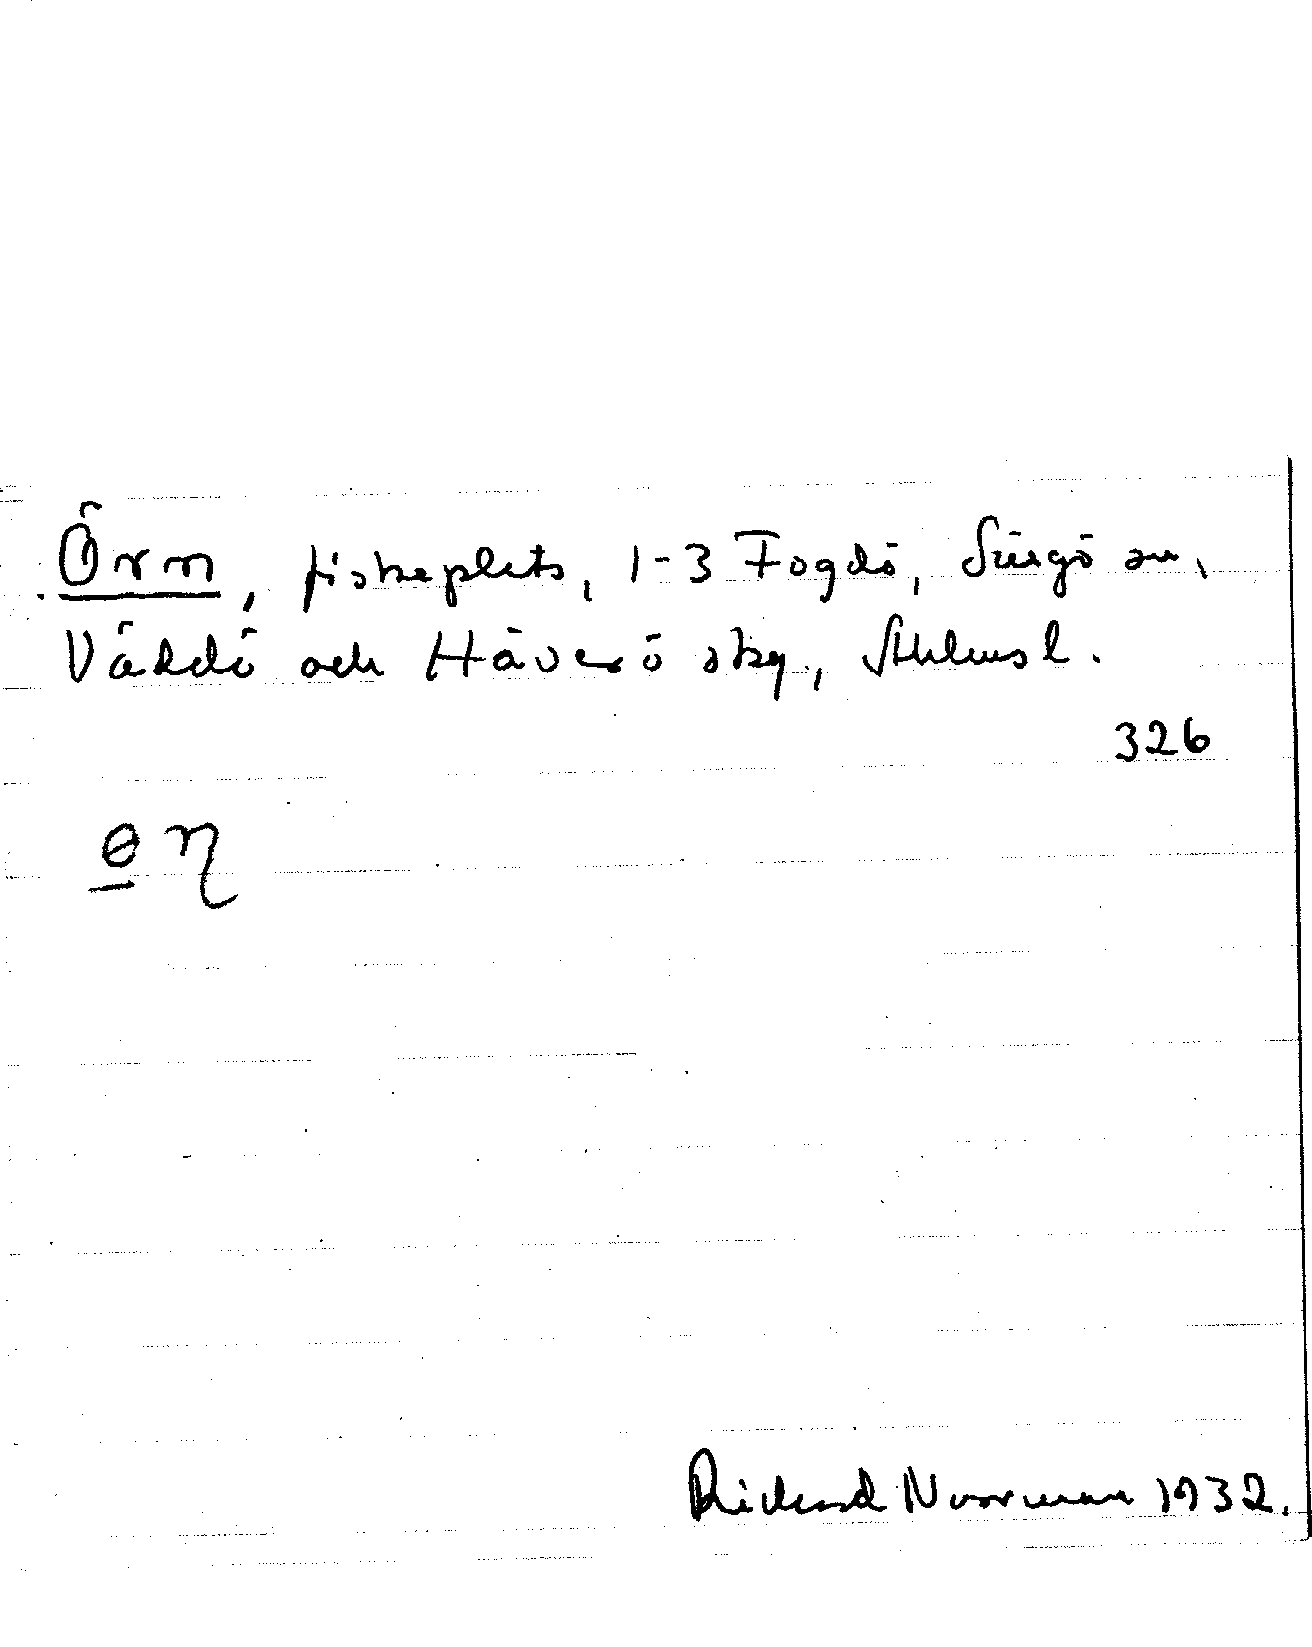 Örn, fiskeplats, 1-3 Fogdö, Singö sn,
Väddö och Häverö skg., Sthlms l.
326
Rickard Norrman 1932.